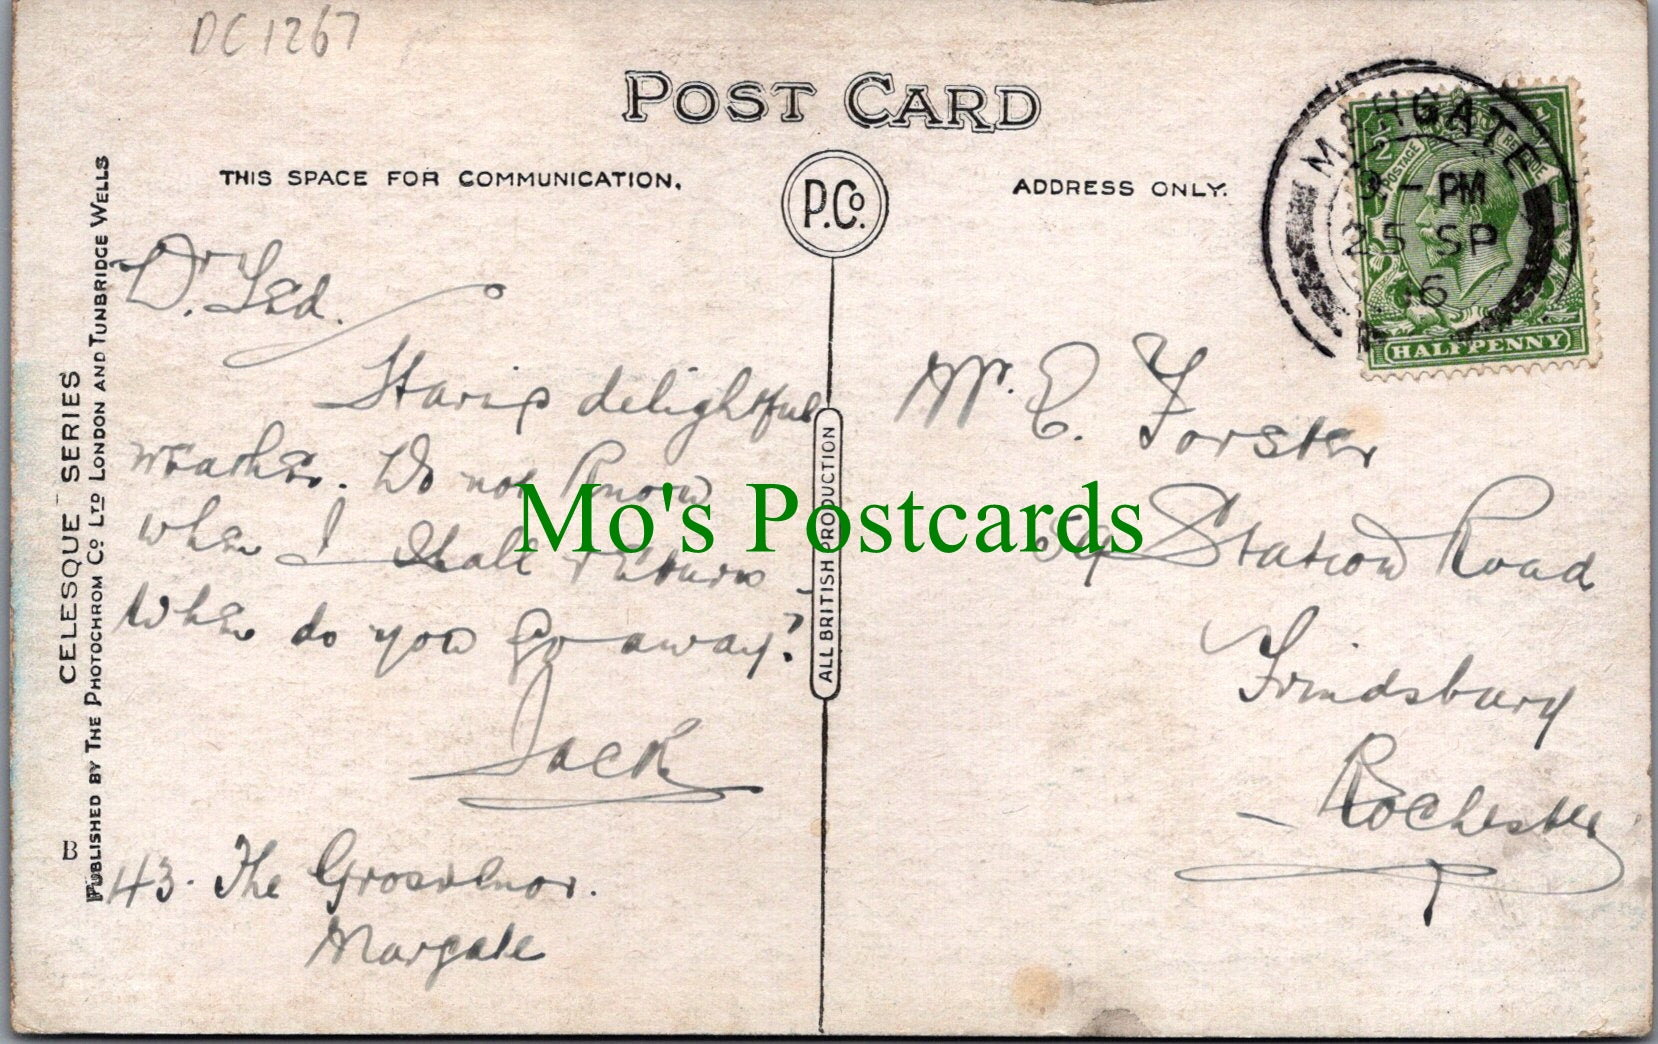 DC1267
POST CARD
THIS SPACE FOR COMMUNICATION.
P.Co.
ADDRESS ONLY.
MARGATE
PM
25 SP
16
POSTAGE REVENUE
HALFPENNY
CELESQUE SERIES
PUBLISHED BY THE PHOTOCHROM CO LTD LONDON AND TUNBRIDGE WELLS
B
ALL BRITISH PRODUCTION
Dr Ted.
Having delightful
weather. Do not know
when I shall return
When do you go away?
Jack
43. The Grosvenor.
Margate
Mr. E. Forster
59 Station Road
Frindsbury
Rochester
Mo's Postcards